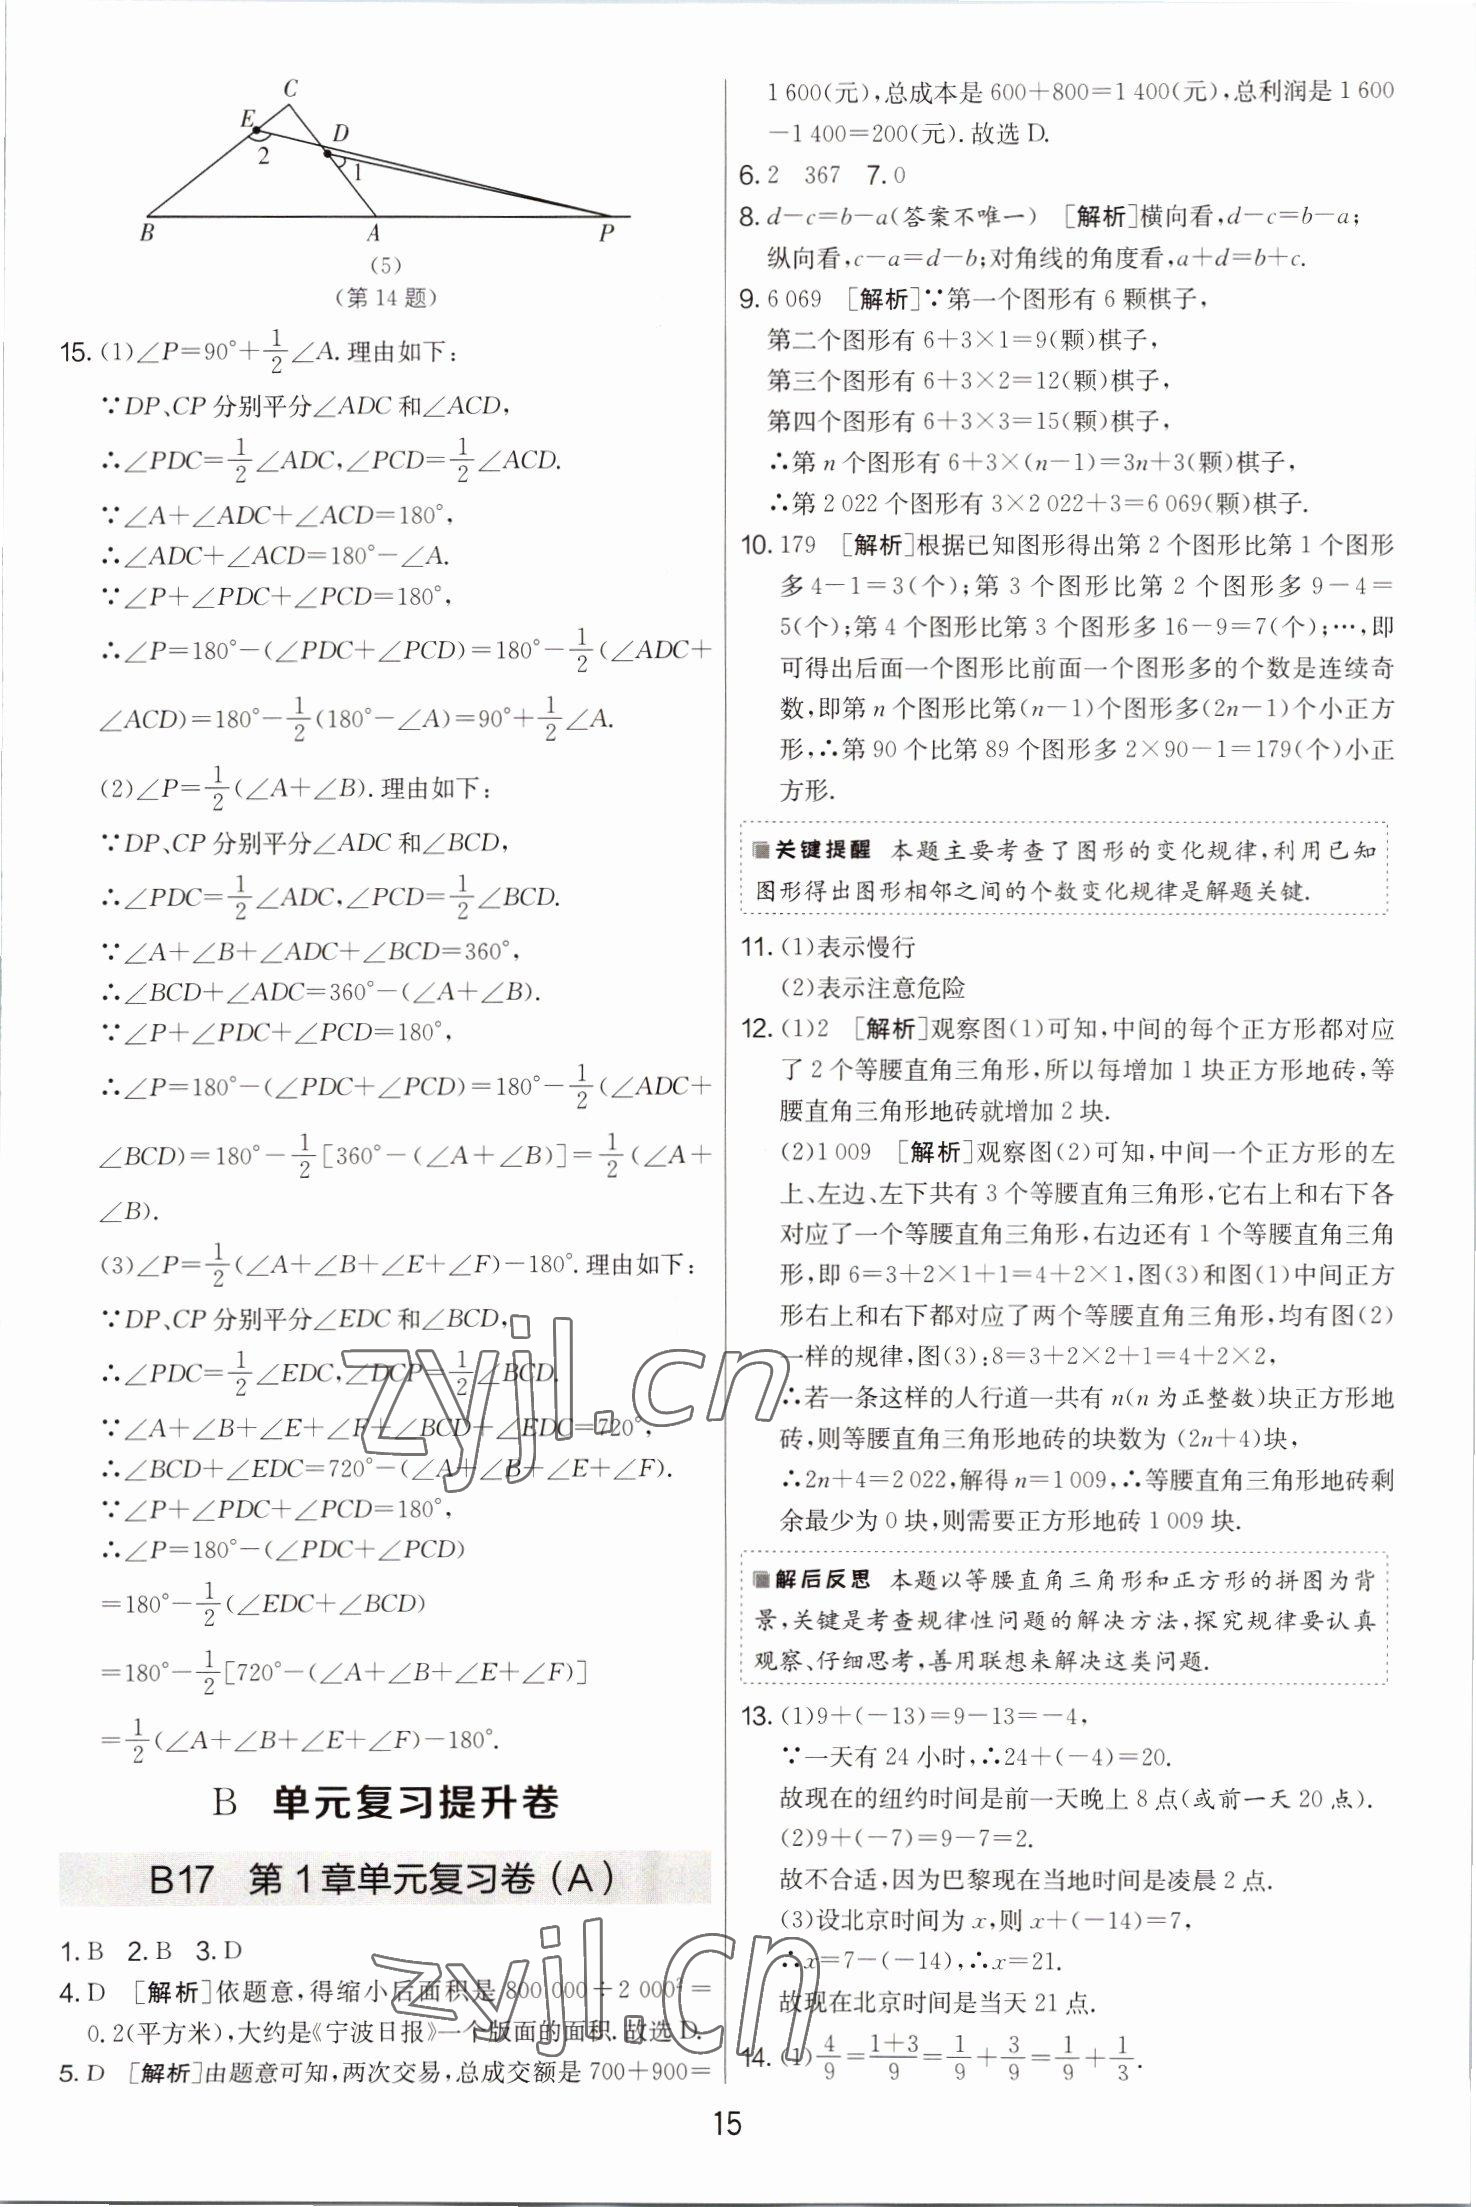 C
E
D
2
1
B
A
P
(5)
(第14题)
15. (1)∠P=90°+1/2∠A.理由如下:
∵DP、CP分别平分∠ADC和∠ACD,
∴∠PDC=1/2∠ADC,∠PCD=1/2∠ACD.
∵∠A+∠ADC+∠ACD=180°,
∴∠ADC+∠ACD=180°-∠A.
∵∠P+∠PDC+∠PCD=180°,
∴∠P=180°-(∠PDC+∠PCD)=180°-1/2(∠ADC+
∠ACD)=180°-1/2(180°-∠A)=90°+1/2∠A.
(2)∠P=1/2(∠A+∠B).理由如下:
∵DP、CP分别平分∠ADC和∠BCD,
∴∠PDC=1/2∠ADC,∠PCD=1/2∠BCD.
∵∠A+∠B+∠ADC+∠BCD=360°,
∴∠BCD+∠ADC=360°-(∠A+∠B).
∵∠P+∠PDC+∠PCD=180°,
∴∠P=180°-(∠PDC+∠PCD)=180°-1/2(∠ADC+
∠BCD)=180°-1/2[360°-(∠A+∠B)]=1/2(∠A+
∠B).
(3)∠P=1/2(∠A+∠B+∠E+∠F)-180°.理由如下:
∵DP、CP分别平分∠EDC和∠BCD,
∴∠PDC=1/2∠EDC,∠DCP=1/2∠BCD.
∵∠A+∠B+∠E+∠F+∠BCD+∠EDC=720°,
∴∠BCD+∠EDC=720°-(∠A+∠B+∠E+∠F).
∵∠P+∠PDC+∠PCD=180°,
∴∠P=180°-(∠PDC+∠PCD)
=180°-1/2(∠EDC+∠BCD)
=180°-1/2[720°-(∠A+∠B+∠E+∠F)]
=1/2(∠A+∠B+∠E+∠F)-180°.
B 单元复习提升卷
B17 第1章单元复习卷(A)
1. B 2. B 3. D
4. D [解析]依题意,得缩小后面积是800 000÷2 000²=
0.2(平方米),大约是《宁波日报》一个版面的面积.故选D.
5. D [解析]由题意可知,两次交易,总成交额是700+900=
1 600(元),总成本是600+800=1 400(元),总利润是1 600
-1 400=200(元).故选D.
6. 2 367 7. 0
8. d-c=b-a(答案不唯一) [解析]横向看,d-c=b-a;
纵向看,c-a=d-b;对角线的角度看,a+d=b+c.
9. 6 069 [解析]∵第一个图形有6颗棋子,
第二个图形有6+3×1=9(颗)棋子,
第三个图形有6+3×2=12(颗)棋子,
第四个图形有6+3×3=15(颗)棋子,
∴第n个图形有6+3×(n-1)=3n+3(颗)棋子,
∴第2 022个图形有3×2 022+3=6 069(颗)棋子.
10. 179 [解析]根据已知图形得出第2个图形比第1个图形
多4-1=3(个);第3个图形比第2个图形多9-4=
5(个);第4个图形比第3个图形多16-9=7(个);…,即
可得出后面一个图形比前面一个图形多的个数是连续奇
数,即第n个图形比第(n-1)个图形多(2n-1)个小正方
形,∴第90个比第89个图形多2×90-1=179(个)小正
方形.
关键提醒 本题主要考查了图形的变化规律,利用已知
图形得出图形相邻之间的个数变化规律是解题关键.
11. (1)表示慢行
(2)表示注意危险
12. (1)2 [解析]观察图(1)可知,中间的每个正方形都对应
了2个等腰直角三角形,所以每增加1块正方形地砖,等
腰直角三角形地砖就增加2块.
(2)1 009 [解析]观察图(2)可知,中间一个正方形的左
上、左边、左下共有3个等腰直角三角形,它右上和右下各
对应了一个等腰直角三角形,右边还有1个等腰直角三角
形,即6=3+2×1+1=4+2×1,图(3)和图(1)中间正方
形右上和右下都对应了两个等腰直角三角形,均有图(2)
一样的规律,图(3):8=3+2×2+1=4+2×2,
∴若一条这样的人行道一共有n(n为正整数)块正方形地
砖,则等腰直角三角形地砖的块数为(2n+4)块,
∴2n+4=2 022,解得n=1 009,∴等腰直角三角形地砖剩
余最少为0块,则需要正方形地砖1 009块.
解后反思 本题以等腰直角三角形和正方形的拼图为背
景,关键是考查规律性问题的解决方法,探究规律要认真
观察、仔细思考,善用联想来解决这类问题.
13. (1)9+(-13)=9-13=-4,
∵一天有24小时,∴24+(-4)=20.
故现在的纽约时间是前一天晚上8点(或前一天20点).
(2)9+(-7)=9-7=2.
故不合适,因为巴黎现在当地时间是凌晨2点.
(3)设北京时间为x,则x+(-14)=7,
∴x=7-(-14),∴x=21.
故现在北京时间是当天21点.
14. (1)4/9=(1+3)/9=1/9+3/9=1/9+1/3.
15
zyjl.cn
zyjl.cn